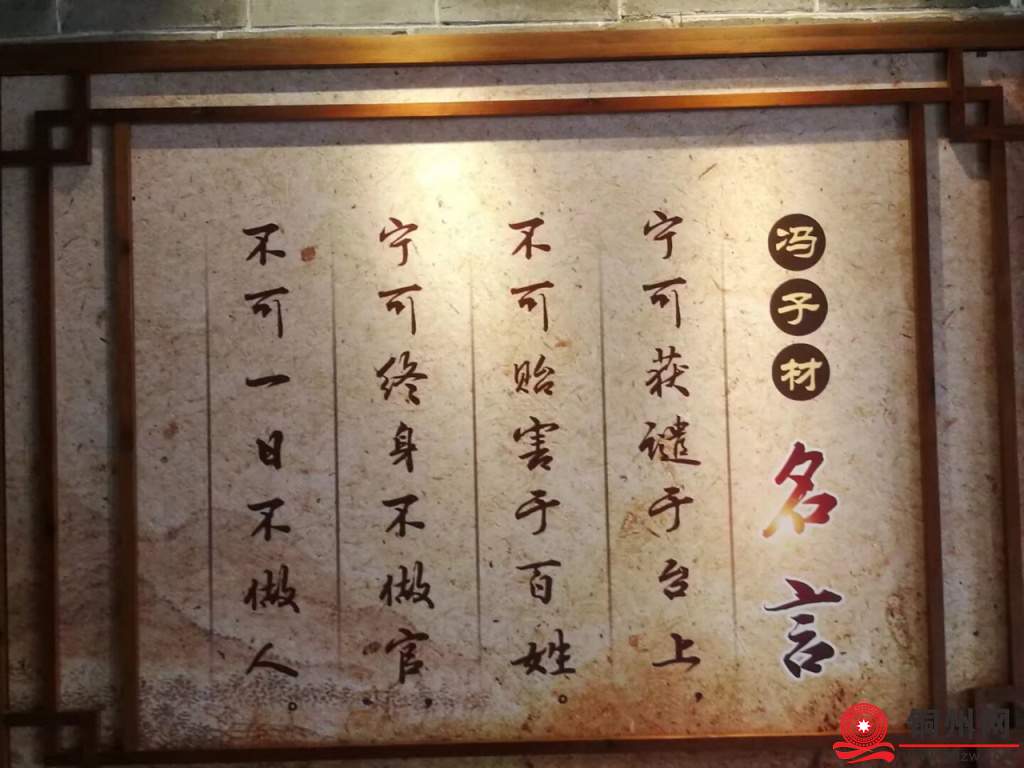 冯子材名言
宁可获谴于台上，
不可贻害于百姓。
宁可终身不做官，
不可一日不做人。